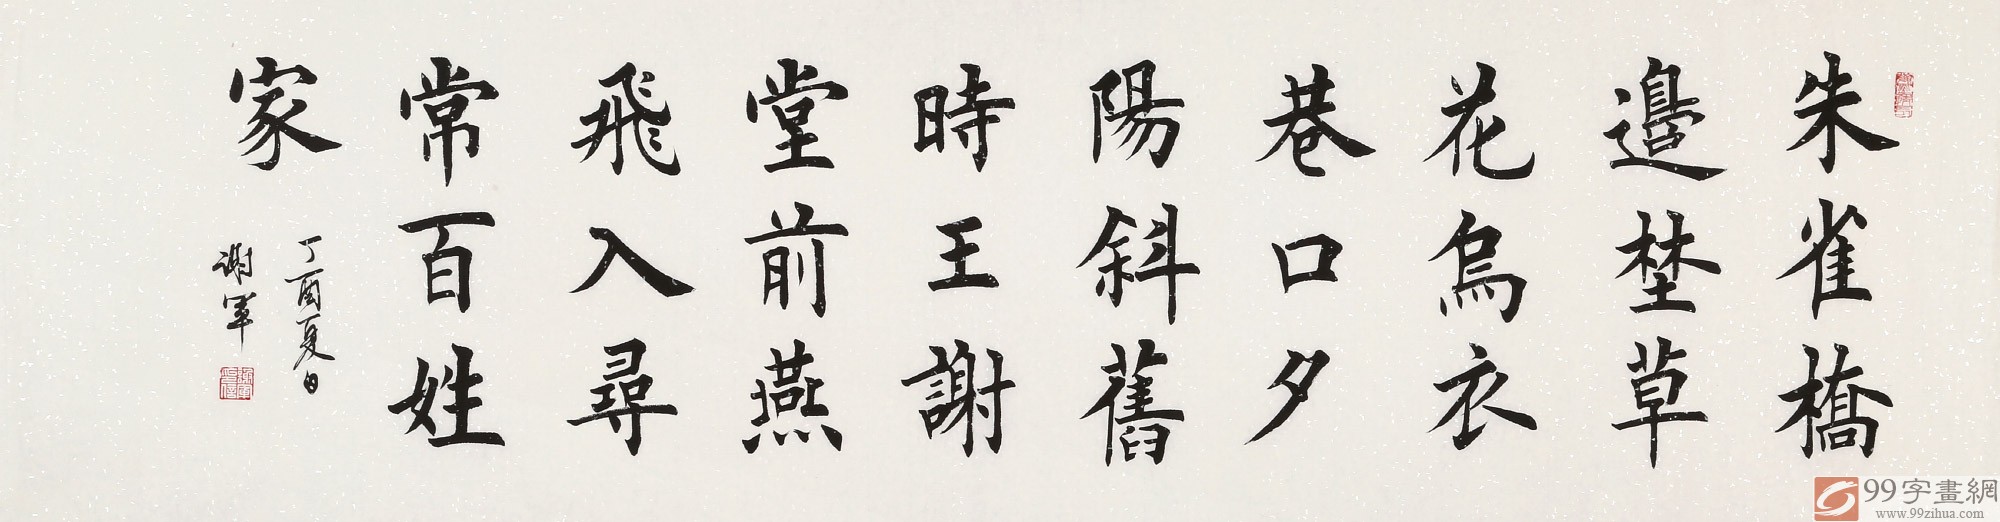 朱雀橋
邉埜草
花烏衣
巷口夕
陽斜舊
時王謝
堂前燕
飛入尋
常百姓
家
丁酉夏日
謝軍
99字畫網
www.99zihua.com